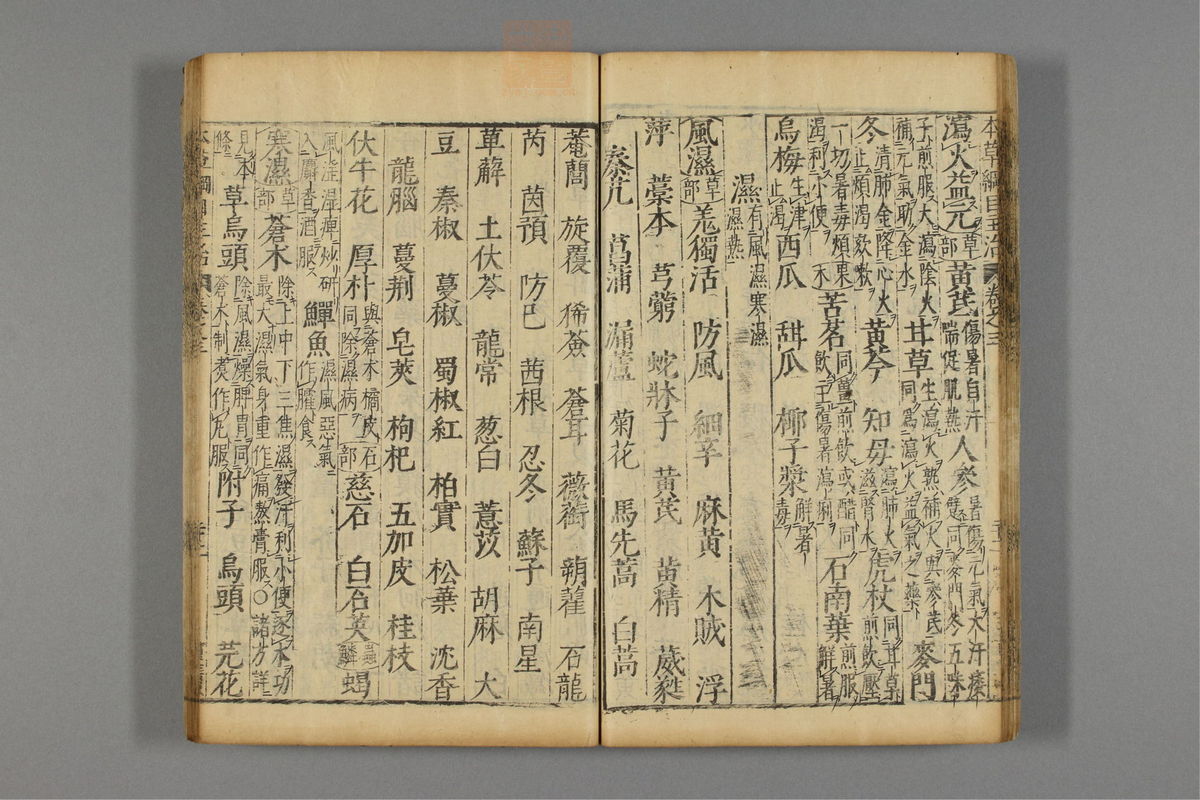 本草綱目主治 卷之三
瀉火益元草部黃芪傷暑自汗喘促肌熱人參暑傷元氣大汗痿躄同麥門冬五味子煎服大瀉陰火補元氣助金水 麥門
冬清肺金降心火止煩渴欬嗽甘草生瀉火熟補火與參芪同爲瀉火益氣之藥
黃芩 知母瀉肺火滋腎水虎杖同甘草煎飲壓一切暑毒煩渴利小便
木 苦茗同薑煎飲或醋同飲主傷暑瀉痢石南葉煎服解暑
烏梅生津止渴西瓜 甜瓜 椰子漿解暑毒
濕有風濕寒濕濕熱
風濕草部羗獨活 防風 細辛 麻黃 木賊 浮
萍 藁本 芎藭 蛇牀子 黃芪 黃精 葳蕤
秦艽 菖蒲 漏蘆 菊花 馬先蒿 白蒿
菴䕡 旋覆 豨薟 蒼耳 薇銜 蒴藋 石龍
芮 茵蕷 防巳 茜根 忍冬 蘇子 南星
萆薢 土伏苓 龍常 葱白 薏苡 胡麻 大
豆 秦椒 蔓椒 蜀椒紅 柏實 松葉 沈香
龍腦 蔓荆 皂莢 枸杞 五加皮 桂枝
伏牛花 厚朴與蒼木橘皮同除濕病石部慈石 白石英蟲鱗蝎
風淫濕痺炒研入麝香酒服鱓魚濕風惡氣作臛食
寒濕草部蒼木除上中下三焦濕發汗利小便逐水功最大濕氣身重作痛熬膏服○諸方詳
見本條草烏頭除風濕燥脾胃同蒼木制煑作丸服附子 烏頭 芫花
本草綱目主治 卷之三